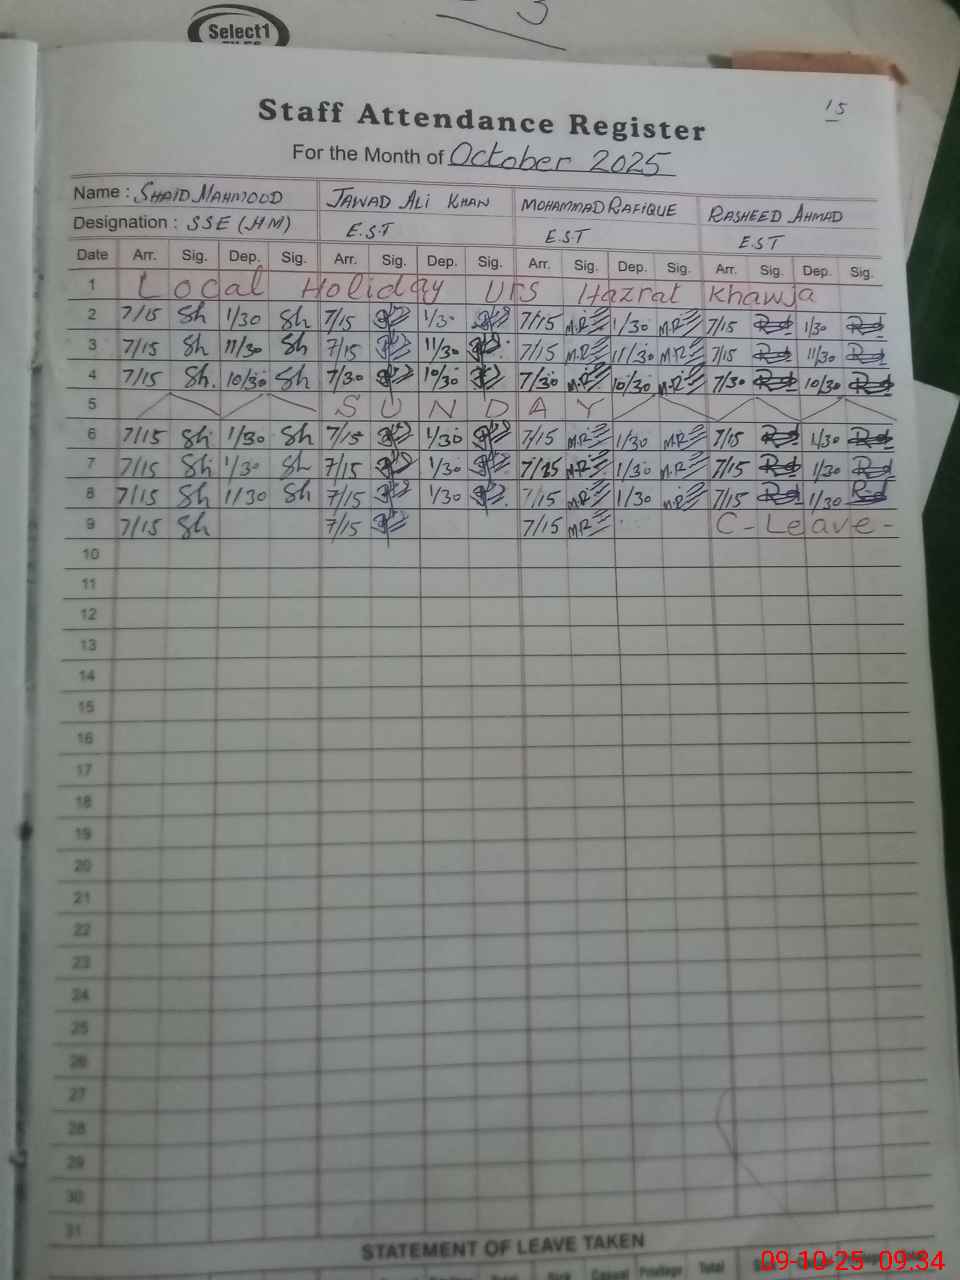 Select1
FILES
15
Staff Attendance Register
For the Month of October 2025
Name : SHAID MAHMOOD JAWAD ALI KHAN MOHAMMAD RAFIQUE RASHEED AHMAD
Designation : SSE (HM) E.S.T E.S.T E.S.T
Date Arr. Sig. Dep. Sig. Arr. Sig. Dep. Sig. Arr. Sig. Dep. Sig. Arr. Sig. Dep. Sig.
1 Local Holiday Urs Hazrat Khawja
2 7/15 Sh 1/30 Sh 7/15 1/30 7/15 M.R 1/30 M.R 7/15 1/30
3 7/15 Sh 11/30 Sh 7/15 11/30 7/15 M.R 11/30 M.R 7/15 11/30
4 7/15 Sh. 10/30 Sh 7/30 10/30 7/30 M.R 10/30 M.R 7/30 10/30
5 SUNDAY
6 7/15 Sh 1/30 Sh 7/15 1/30 7/15 M.R 1/30 M.R 7/15 1/30
7 7/15 Sh 1/30 Sh 7/15 1/30 7/15 M.R 1/30 M.R 7/15 1/30
8 7/15 Sh 1/30 Sh 7/15 1/30 7/15 M.R 1/30 M.R 7/15 1/30
9 7/15 Sh 7/15 7/15 M.R C-Leave-
10
11
12
13
14
15
16
17
18
19
20
21
22
23
24
25
26
27
28
29
30
31
STATEMENT OF LEAVE TAKEN
Casual Privilege Total
09-10-25 09:34